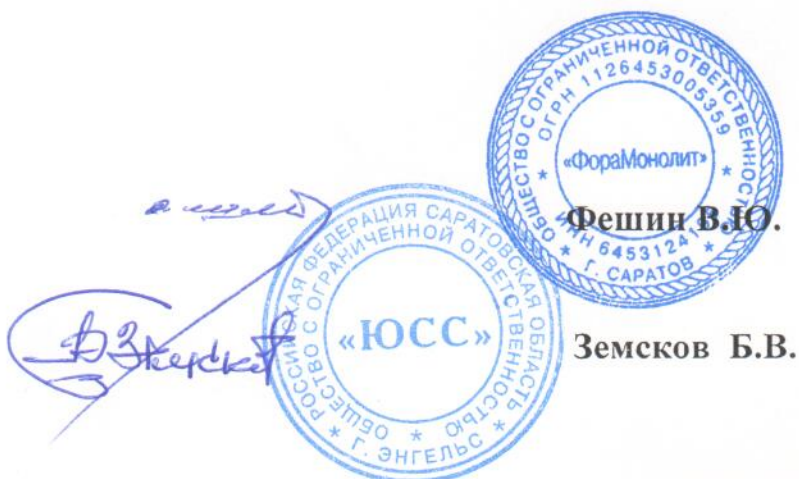 ОБЩЕСТВО С ОГРАНИЧЕННОЙ ОТВЕТСТВЕННОСТЬЮ
ОГРН 1126453005359
«ФораМонолит»
ИНН
Г. САРАТОВ
Фешин В.Ю.
РОССИЙСКАЯ ФЕДЕРАЦИЯ САРАТОВСКАЯ ОБЛАСТЬ
ОБЩЕСТВО С ОГРАНИЧЕННОЙ ОТВЕТСТВЕННОСТЬЮ
«ЮСС»
Г. ЭНГЕЛЬС
Земсков Б.В.